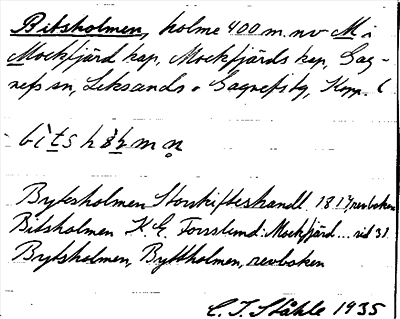 Bitsholmen, holme 400 m. nv M i
Mockfjärd kap, Mockfjärds kap, Gag-
nefs sn, Leksands o Gagnefs tg, Kopp. l
Bytesholmen Storskifteshandl. 1817, revboken
Bitsholmen K. E. Forsslund: Mockfjärd... sid 31.
Bytsholmen, Byttholmen, revboken
C. I. Ståhle 1935